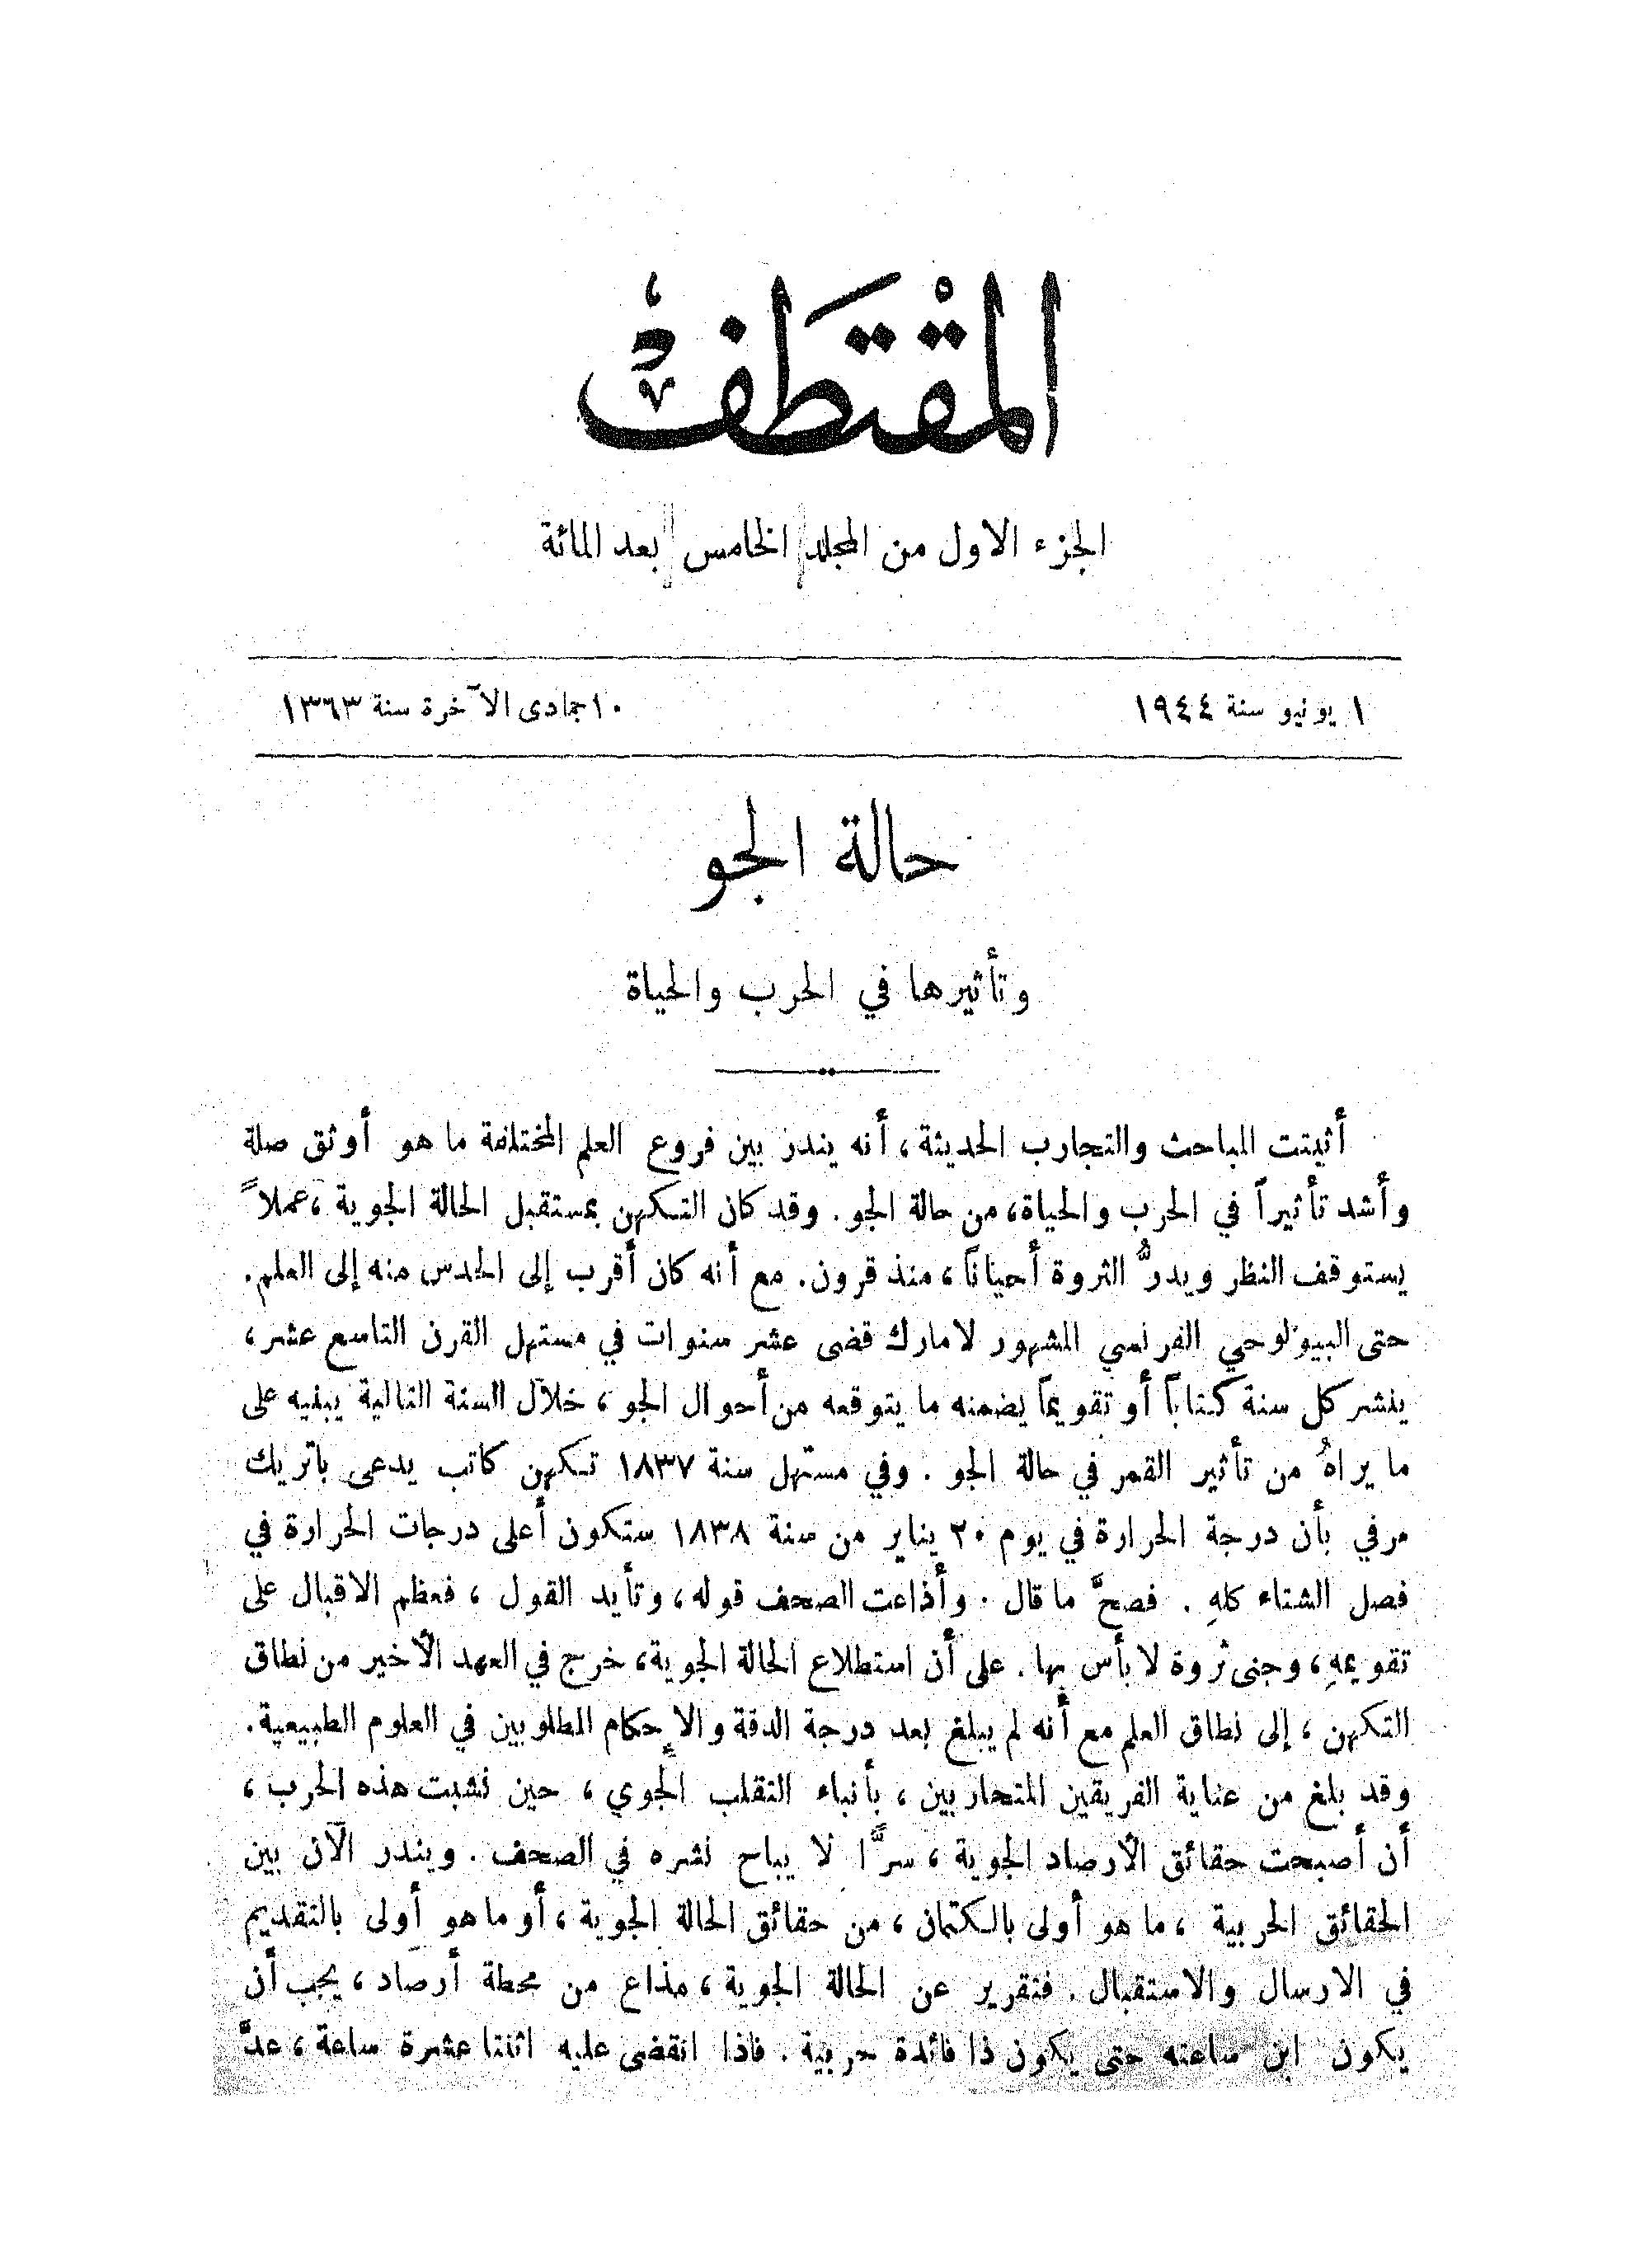 المقتطف
الجزء الاول من المجلد الخامس بعد المائة
١ يونيو سنة ١٩٤٤
١٠ جمادى الآخرة سنة ١٣٦٣
حالة الجو
وتأثيرها في الحرب والحياة
أثبتت المباحث والتجارب الحديثة، أنه يندر بين فروع العلم المختلفة ما هو أوثق صلة
وأشد تأثيراً في الحرب والحياة، من حالة الجو. وقد كان التكهن بمستقبل الحالة الجوية، عملاً
يستوقف النظر ويدرُّ الثروة أحياناً، منذ قرون. مع أنه كان أقرب إلى الحدس منه إلى العلم.
حتى البيولوجي الفرنسي المشهور لامارك قضى عشر سنوات في مستهل القرن التاسع عشر،
ينشر كل سنة كتاباً أو تقويماً يضمنه ما يتوقعه من أحوال الجو، خلال السنة التالية يبنيه على
ما يراهُ من تأثير القمر في حالة الجو. وفي مستهل سنة ١٨٣٧ تكهن كاتب يدعى باتريك
مرفي بأن درجة الحرارة في يوم ٢٠ يناير من سنة ١٨٣٨ ستكون أعلى درجات الحرارة في
فصل الشتاء كلهِ. فصحَّ ما قال. وأذاعت الصحف قوله، وتأيد القول، فعظم الاقبال على
تقويمهِ، وجنى ثروة لا بأس بها. على أن استطلاع الحالة الجوية، خرج في العهد الأخير من نطاق
التكهن، إلى نطاق العلم مع أنه لم يبلغ بعد درجة الدقة والإحكام المطلوبين في العلوم الطبيعية.
وقد بلغ من عناية الفريقين المتحاربين، بأنباء التقلب الجوي، حين نشبت هذه الحرب،
أن أصبحت حقائق الأرصاد الجوية، سرًّا لا يباح نشره في الصحف. ويندر الآن بين
الحقائق الحربية، ما هو أولى بالكتمان، من حقائق الحالة الجوية، أو ما هو أولى بالتقديم
في الارسال والاستقبال. فتقرير عن الحالة الجوية، مذاع من محطة أرصاد، يجب أن
يكون ابن ساعته حتى يكون ذا فائدة حربية. فاذا انقضى عليه اثنتا عشرة ساعة، عدَّ